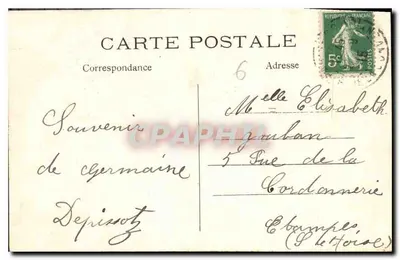 CARTE POSTALE
Correspondance
6
Adresse
REPUBLIQUE FRANCAISE
5c
POSTES
Souvenir
de Germaine
Depissot
Melle Elisabeth
5 Rue de la
Cordonnerie
Etampes
(S et Oise)
CPAPHIL